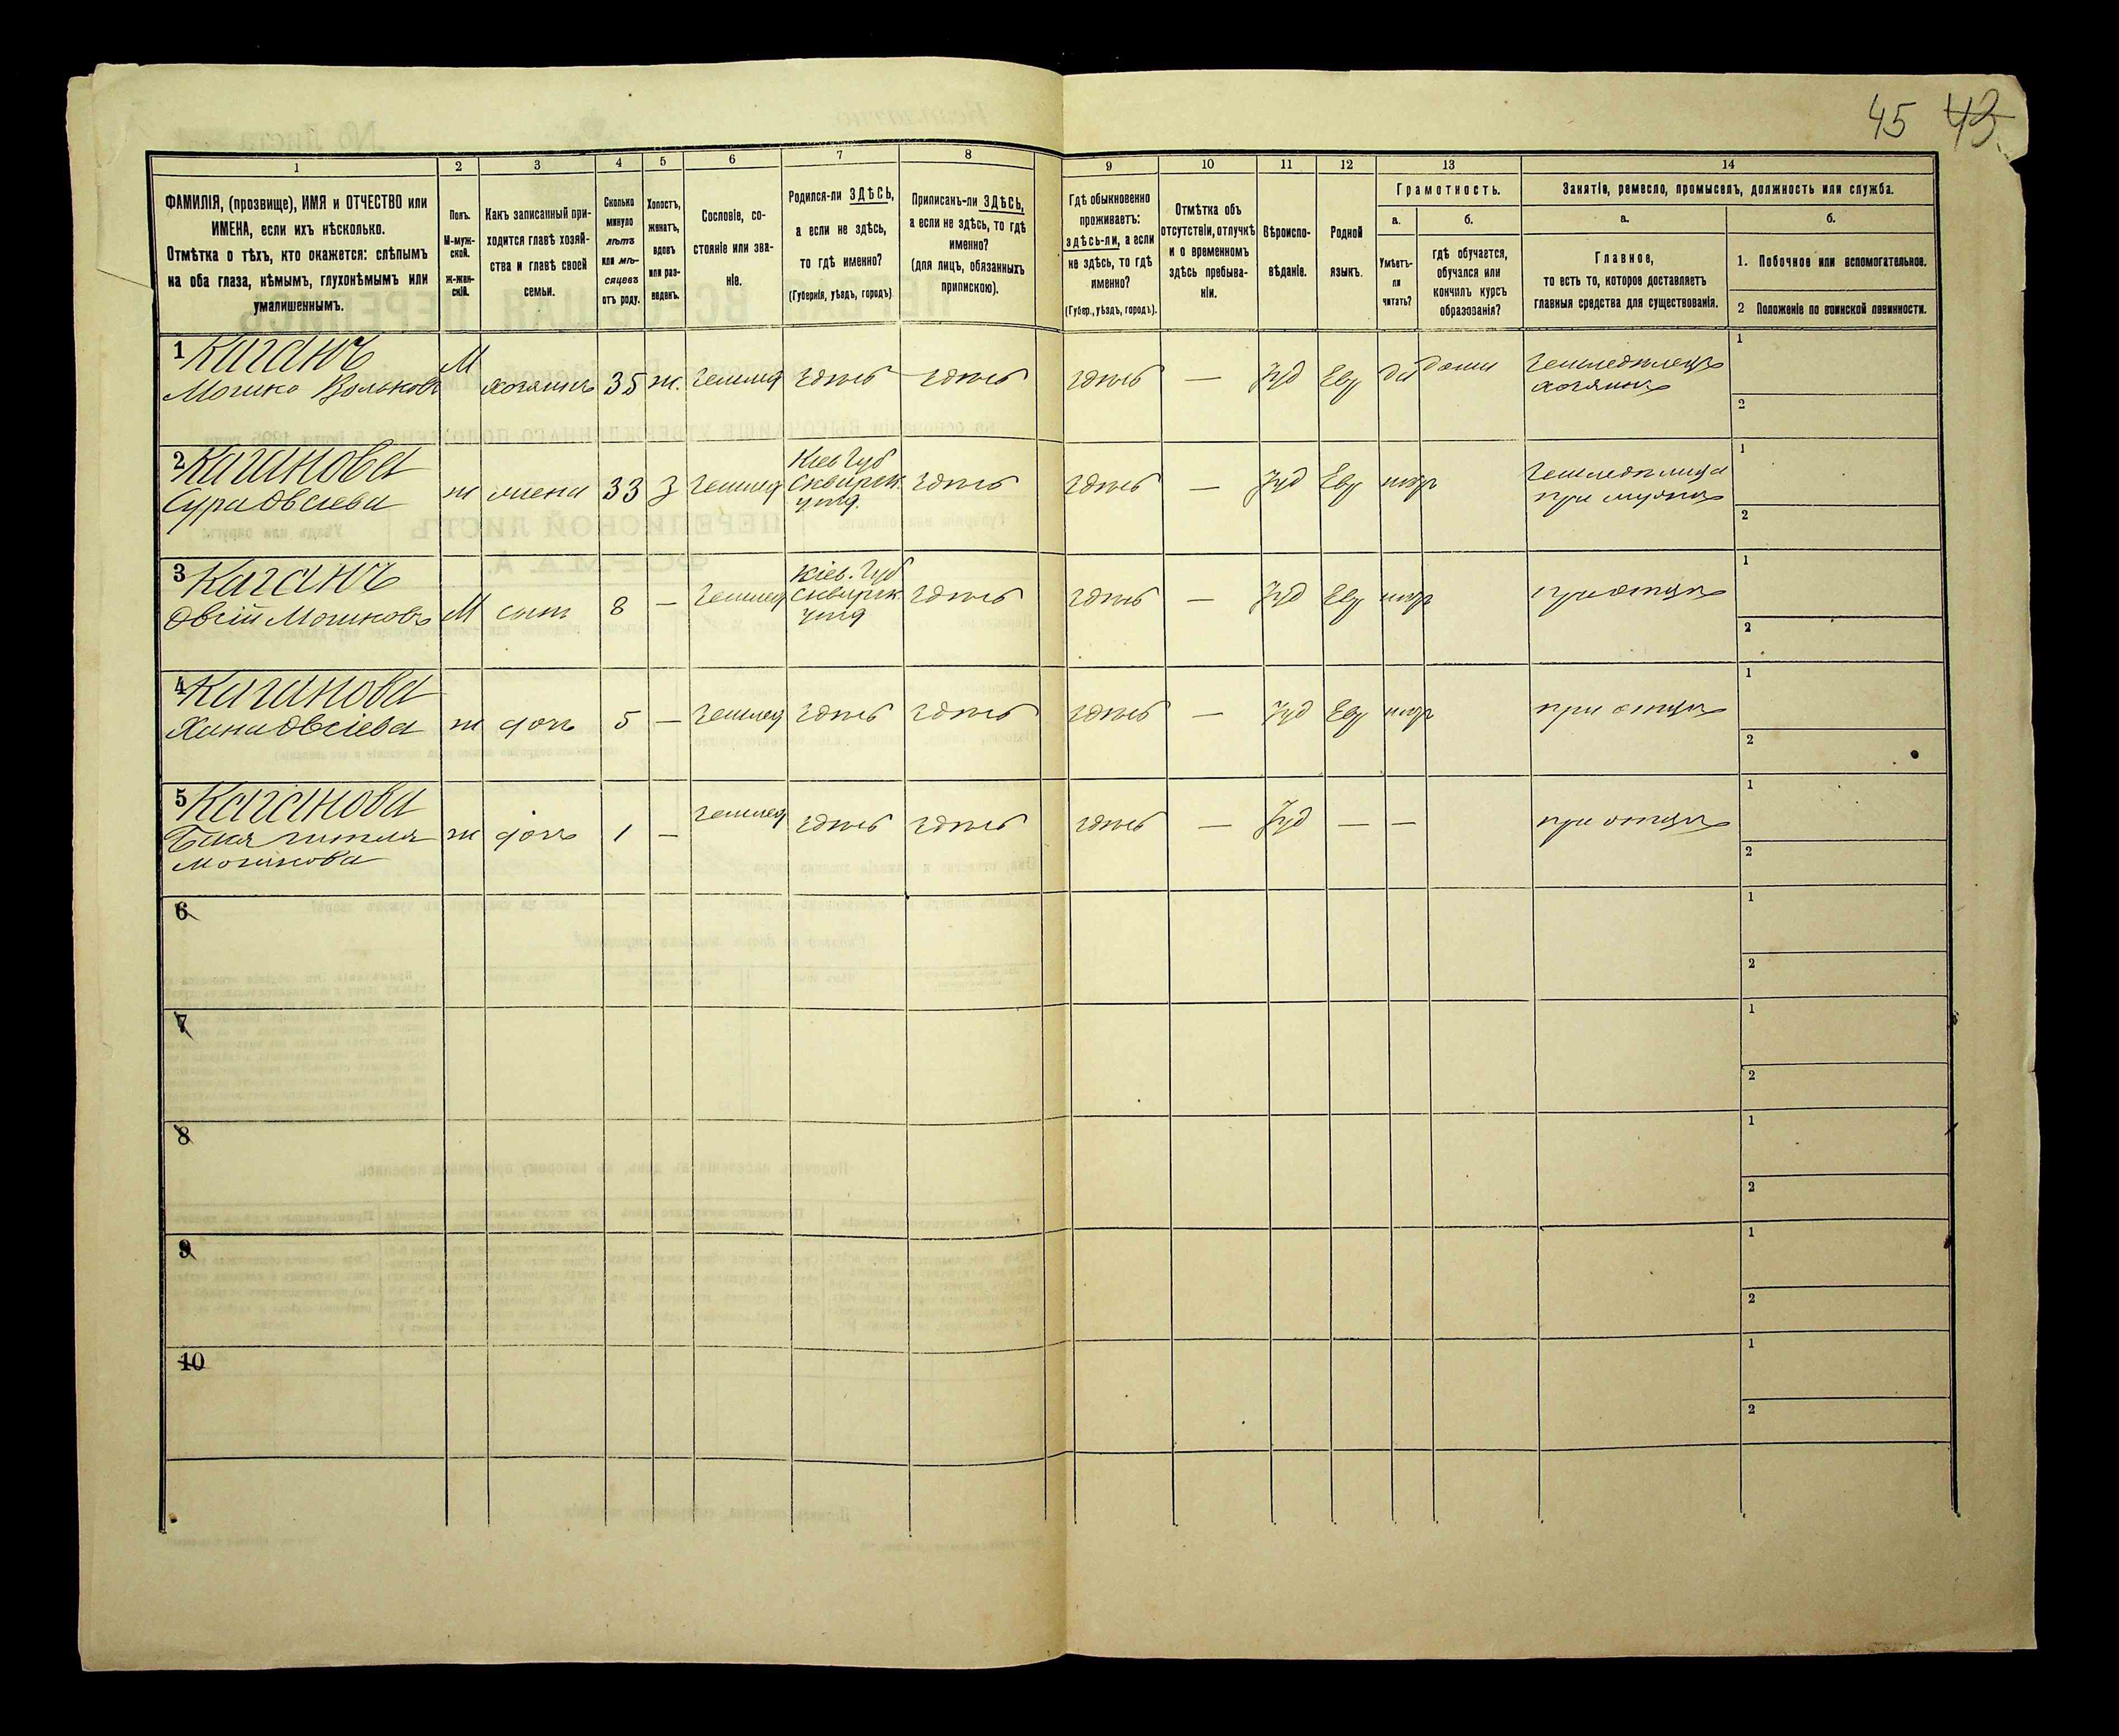 45 43
1 2 3 4 5 6 7 8 9 10 11 12 13 14
ФАМИЛІЯ, (прозвище), ИМЯ и ОТЧЕСТВО или
ИМЕНА, если ихъ нѣсколько.
Отмѣтка о тѣхъ, кто окажется: слѣпымъ
на оба глаза, нѣмымъ, глухонѣмымъ или
умалишеннымъ.
Полъ.
М-муж-
ской.
Ж-жен-
скій.
Какъ записанный при-
ходится главѣ хозяй-
ства и главѣ своей
семьи.
Сколько
минуло
лѣтъ
или мѣ-
сяцевъ
отъ роду.
Холостъ,
женатъ,
вдовъ
или раз-
веденъ.
Сословіе, со-
стояніе или зва-
ніе.
Родился-ли ЗДѢСЬ,
а если не здѣсь,
то гдѣ именно?
(Губернія, уѣздъ, городъ)
Приписанъ-ли ЗДѢСЬ,
а если не здѣсь, то гдѣ
именно?
(для лицъ, обязанныхъ
припискою).
Гдѣ обыкновенно
проживаетъ:
здѣсь-ли, а если
не здѣсь, то гдѣ
именно?
(Губер., уѣздъ, городъ).
Отмѣтка объ
отсутствіи, отлучкѣ
и о временномъ
здѣсь пребыва-
ніи.
Вѣроиспо-
вѣданіе.
Родной
языкъ.
Грамотность.
а. б.
Умѣетъ-
ли
читать?
гдѣ обучается,
обучался или
кончилъ курсъ
образованія?
Занятіе, ремесло, промыселъ, должность или служба.
а. б.
Главное,
то есть то, которое доставляетъ
главныя средства для существованія.
1. Побочное или вспомогательное.
2 Положеніе по воинской повинности.
1 Каганъ
Мошко Вольковъ
М хозяинъ 35 ж. землед здѣсь здѣсь здѣсь — Іуд Евр да дома
Земледѣлецъ
хозяинъ
1
2
2 Каганова
Сура Овсіева
ж жена 33 З землед
Кіев Губ
Сквирск.
уѣзд.
здѣсь здѣсь — Іуд Евр негр
Земледѣлица
при мужѣ
1
2
3 Каганъ
Овсій Мошковъ
М сынъ 8 — землед
Кіев. Губ
Сквирск.
уѣзд
здѣсь здѣсь — Іуд Евр негр при отцѣ
1
2
4 Каганова
Хана Овсіева
ж дочь 5 — землед здѣсь здѣсь здѣсь — Іуд Евр негр при отцѣ
1
2
5 Каганова
Мошкова
ж дочь 1 — землед здѣсь здѣсь здѣсь — Іуд — — при отцѣ
1
2
6
1
2
7
1
2
8
1
2
9
1
2
10
1
2